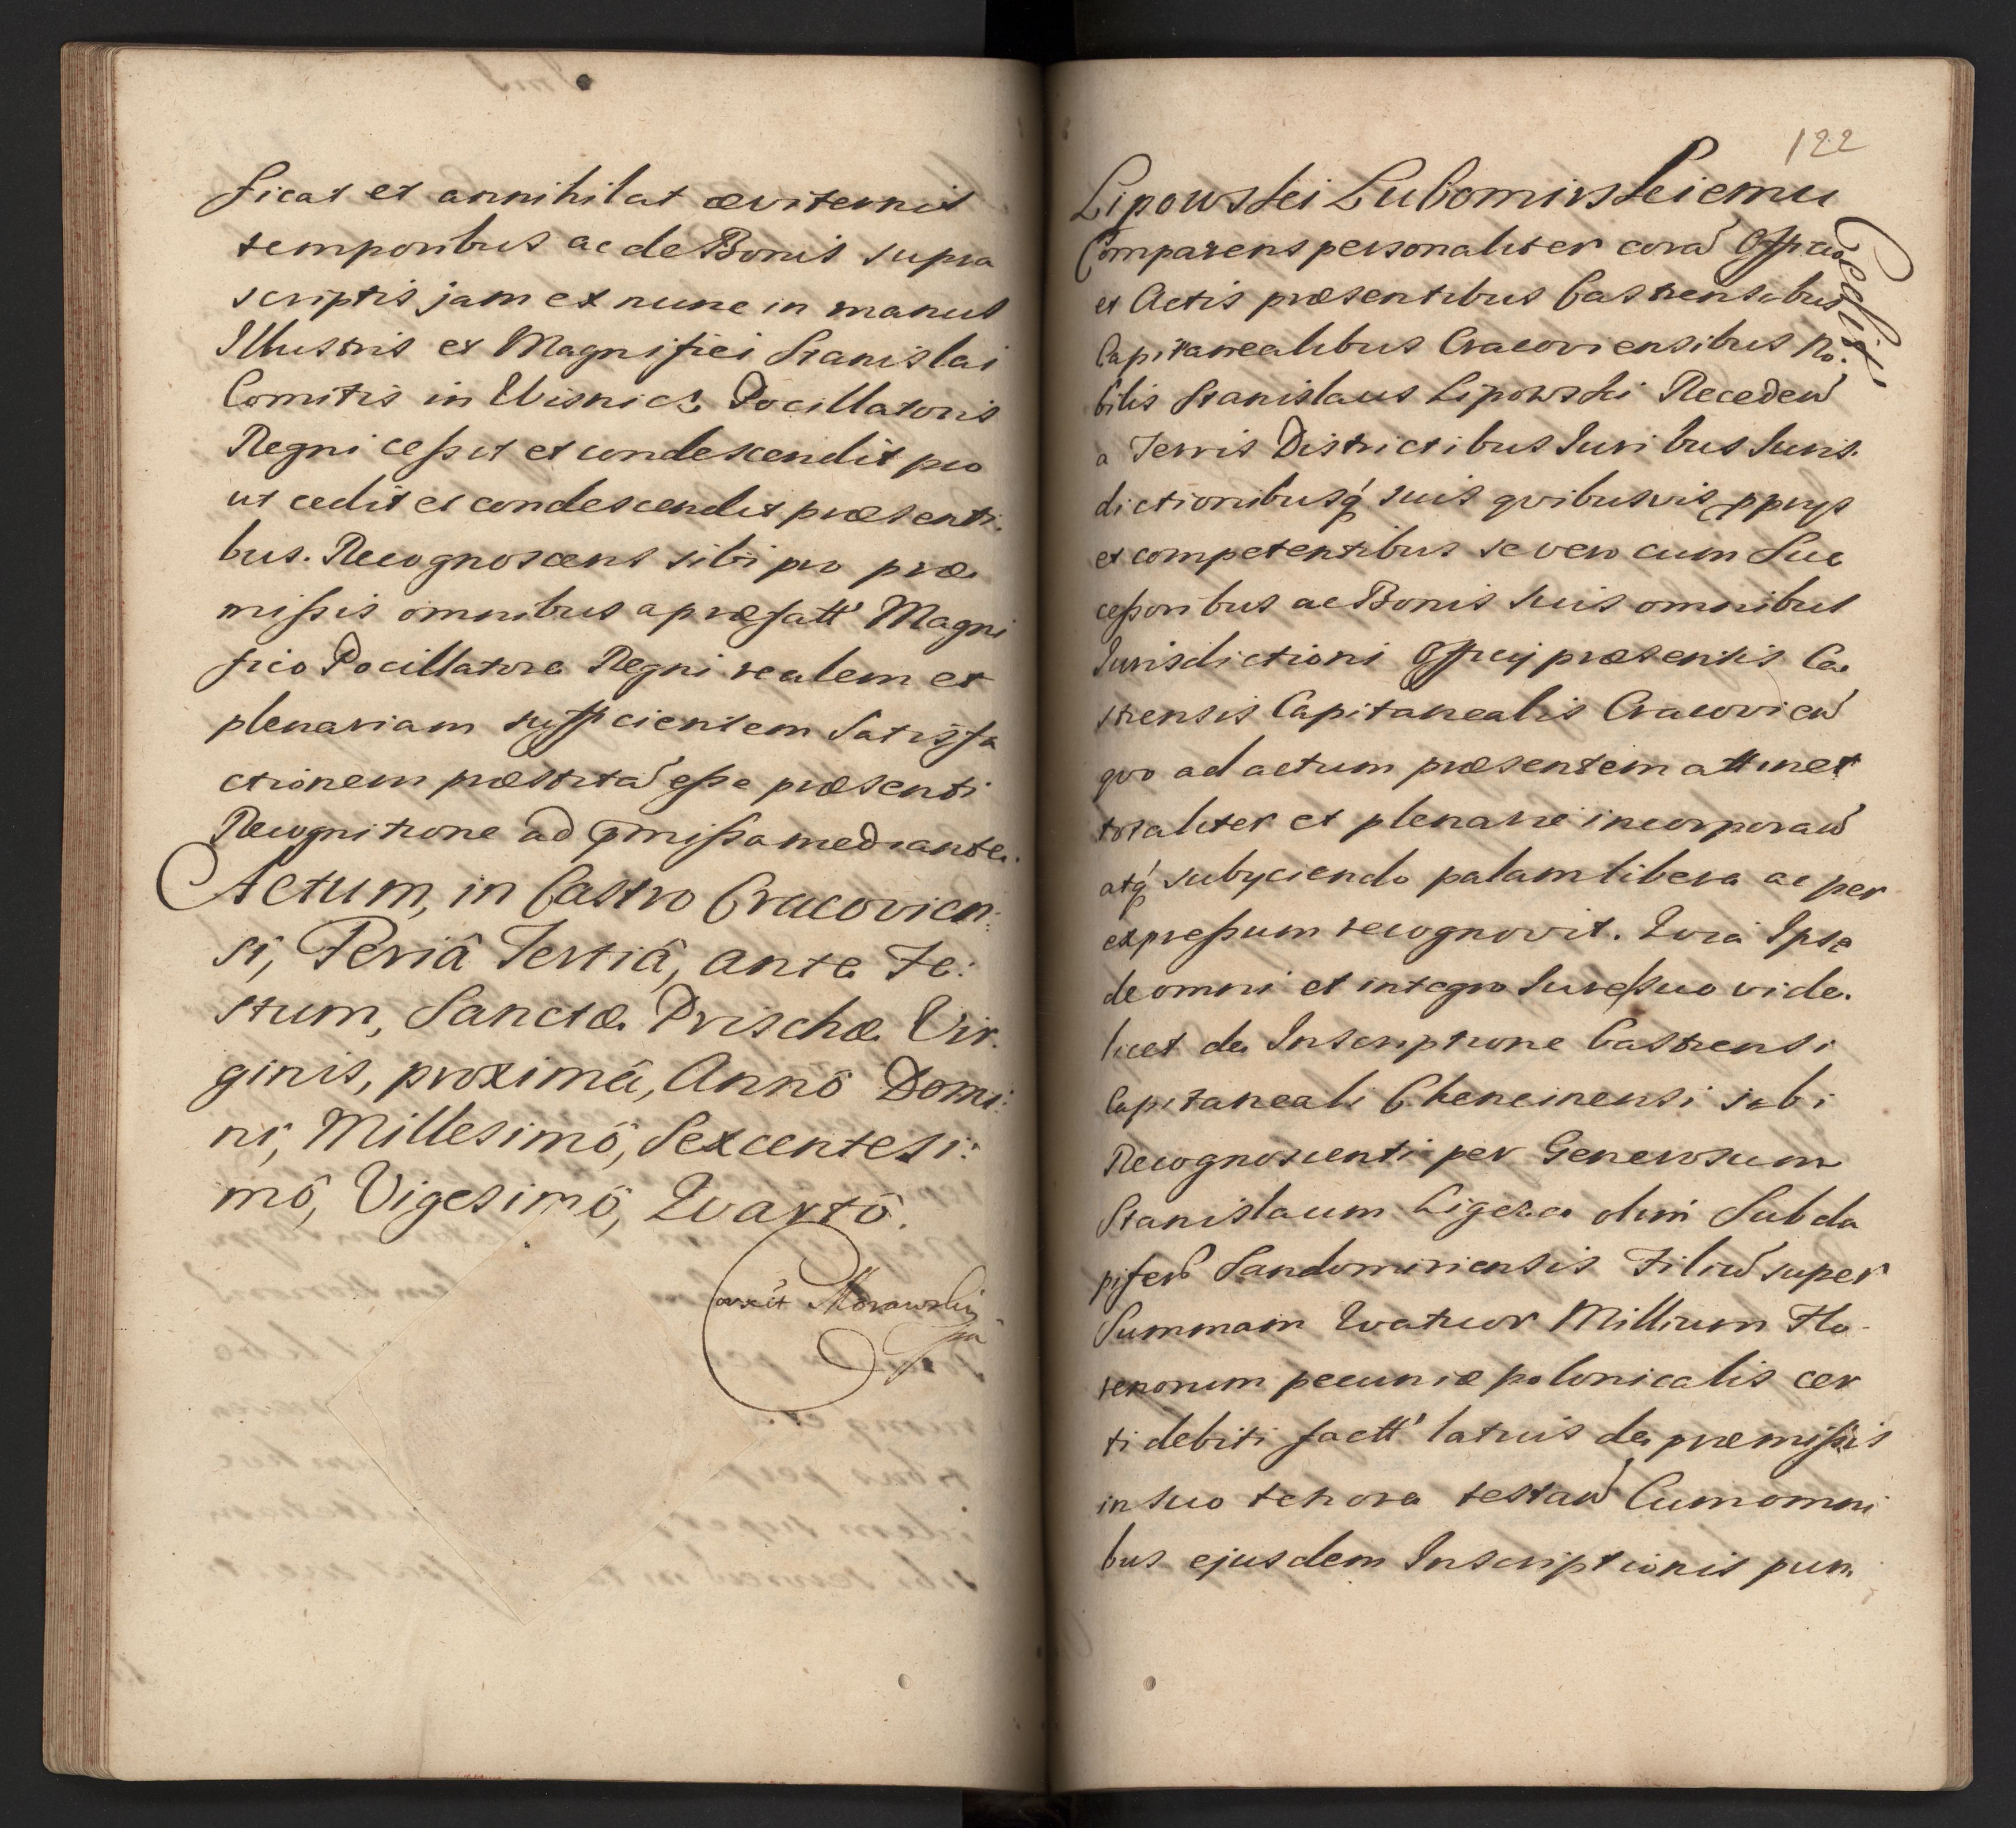 ficat et annihilat æviternis
temporibus ac de Bonis supra
scriptis jam ex nunc in manus
Illustris et Magnifici Stanislai
Comitis in Wisnicz Pocillatoris
Regni cessit et condescendit pro
ut cedit et condescendit præsenti.
bus. Recognoscens sibi pro præ
missis omnibus a præfatt Magni
fico Pocillatore Regni realem et
plenariam sufficientem Satisfa
ctionem præstitã esse præsenti
Recognitione ad pmissa mediante.
Actum, in Castro Cracovien:
si, Feriâ Tertiâ, ante Fe:
stum, Sanctæ Prischæ Vir.
ginis, proximâ, Annô Domi:
ni, Millesimô, Sexcentesi:
mô, Vigesimô, Quartô.
Coxit Morawski
122
Lipowski Lubomirskiemu
Cedit
Comparens personaliter corã Officio
et Actis præsentibus Castrensibus
Capitanealibus Cracoviensibus No.
bilis Stanislaus Lipowski Recedeñ
a Terris Districtibus Juribus Juris.
dictionibusq suis qvibusvis pprys
et competentibus se vero cum Suc
cessoribus ac Bonis suis omnibus
Jurisdictioni Officij præsentis Ca
strensis Capitanealis Cracovieñ
qvo ad actum præsentem attinet
totaliter et plenarie incorporañ
atq subyciendo palam libera ac per
expressum recognovit. Qvia Ipse
de omni et integro Jure suo vide.
licet de Inscriptione Castrensi
Capitaneali Chencinensi sibi
Recognoscenti per Generosum
Stanislaum Ligeza olim Subda
piferi Sandomiriensis Filiũ super
Summam Qvatuor Millium Flo
renorum pecuniæ polonicalis cer
ti debiti factt latius de præmissis
in suo tenore testañ Cum omni
bus ejusdem Inscriptionis pun